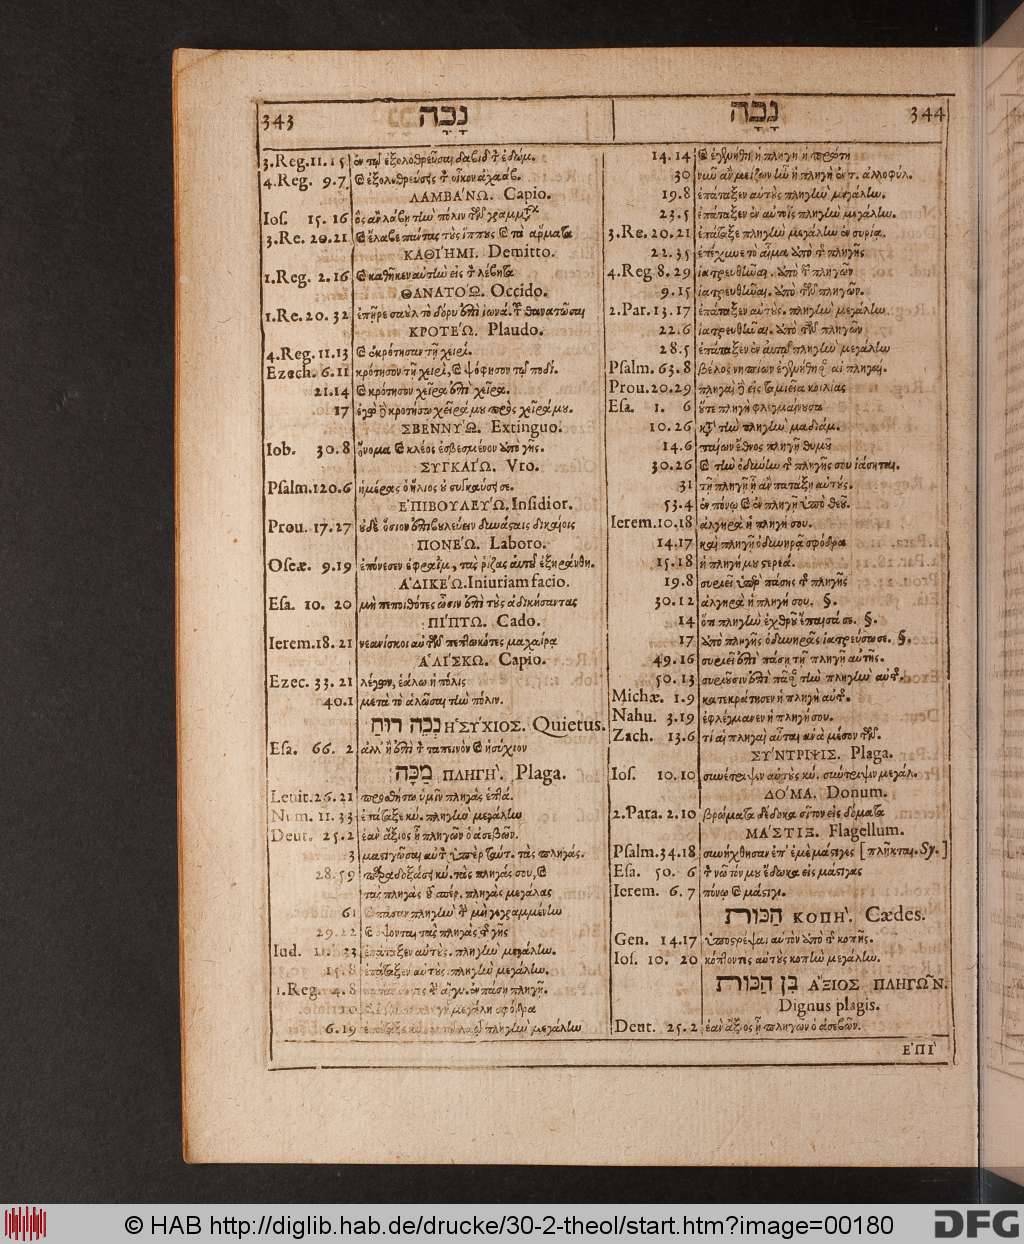 343 נָכָה
3.Reg.11.15 ἐν τῷ ἐξολοθρεῦσαι δαβὶδ τ̀ ἐδώμ.
4.Reg. 9.7 καὶ ἐξολοθρεύσεις τ̀ οἶκον ἀχαάβ.
ΛΑΜΒΑ'ΝΩ. Capio.
Ios. 15.16 ὃς ἂν λάβῃ τὴν πόλιν τῶν γραμμ̃
3.Re.20.21 καὶ ἔλαβε πάντας τοὺς ἵππους καὶ τὰ ἅρματα
ΚΑΘΙ'ΗΜΙ. Demitto.
1.Reg. 2.16 καὶ καθῆκεν αὐτὴν εἰς τ̀ λέβητα
ΘΑΝΑΤΟ'Ω. Occido.
1.Re.20.32 ἐπῆρε σαοὺλ τὸ δόρυ ἐπὶ ἰωνά. τ̃ θανατῶσαι
ΚΡΟΤΕ'Ω. Plaudo.
4.Reg.11.13 καὶ ἐκρότησαν τῇ χειρί.
Ezech. 6.11 κρότησον τῇ χειρὶ, καὶ ψόφησον τῷ ποδί.
21.14 καὶ κρότησον χεῖρα ἐπὶ χεῖρα.
17 ἐγὼ δὲ κροτήσω χεῖρά μου πρὸς χεῖρά μου.
ΣΒΕΝΝΥ'Ω. Extinguo.
Iob. 30.8 ὄνομα καὶ κλέος ἐσβεσμένον ἀπὸ γῆς.
ΣΥΓΚΑΙ'Ω. Vro.
Psalm.120.6 ἡμέρας ὁ ἥλιος οὐ συγκαύσει σε.
Ε'ΠΙΒΟΥΛΕΥ'Ω. Insidior.
Prou. 17.27 οὐδὲ ὅσιον ἐπιβουλεύειν δυνάσταις δικαίοις
ΠΟΝΕ'Ω. Laboro.
Oseæ. 9.19 ἐπόνεσεν ἐφραῒμ, τὰς ῥίζας αὐτοῦ ἐξηράνθη.
Α'ΔΙΚΕ'Ω. Iniuriam facio.
Esa. 10. 20 μὴ πεποιθότες ὦσιν ἐπὶ τοὺς ἀδικήσαντας
ΠΙ'ΠΤΩ. Cado.
Ierem.18. 21 νεανίσκοι αὐτῶν πεπτωκότες μαχαίρᾳ
Α'ΛΙ'ΣΚΩ. Capio.
Ezec. 33. 21 λέγων, ἑάλω ἡ πόλις
40.1 μετὰ τὸ ἁλῶσαι τὴν πόλιν.
נְכֵה רוּחַ Η'ΣΥ'ΧΙΟΣ. Quietus.
Esa. 66. 2 ἀλλ' ἢ ἐπὶ τ̀ ταπεινὸν καὶ ἡσύχιον
מַכָּה ΠΛΗΓΗ'. Plaga.
Leuit.26.21 προσθήσω ὑμῖν πληγὰς ἑπτά.
Num. 11.33 ἐπάταξε κύ. πληγὴν μεγάλην
Deut. 25.2 ἐὰν ἄξιος ᾖ πληγῶν ὁ ἀσεβῶν.
3 μαστιγῶσαι αὐτ̀ ὑπὲρ ταύτ. τὰς πληγάς.
28.59 παραδοξάσει κύ. τὰς πληγάς σου, καὶ
τὰς πληγὰς τ̃ σπέρ. πληγὰς μεγάλας
61 καὶ πᾶσαν πληγὴν τ̀ μὴ γεγραμμένην
29.22 καὶ ὄψονται τὰς πληγὰς τ̃ γῆς
Iud. ἐπάταξεν αὐτοὺς. πληγὴν μεγάλην.
15.8 ἐπάταξεν αὐτοὺς πληγὴν μεγάλην.
1.Reg. 4.8 τ̀ αἴγυ. ἐν πάσῃ πληγῇ.
μεγάλη σφόδρα
6.19 πληγὴν μεγάλην
נָכָה 344
14.14 καὶ ἐγενήθη ἡ πληγὴ ἡ πρώτη
30 νῦν ἂν μείζων ἦν ἡ πληγὴ ἐν τ. ἀλλοφύλ.
19.8 ἐπάταξεν αὐτοὺς πληγὴν μεγάλην.
23.5 ἐπάταξεν ἐν αὐτοῖς πληγὴν μεγάλην.
3.Re. 20.21 ἐπάταξε πληγὴν μεγάλην ἐν συρίᾳ.
22.35 ἐπέχυνε τὸ αἷμα ἀπὸ τ̃ πληγῆς
4.Reg 8. 29 ἰατρευθῆναι ἀπὸ τ̃ πληγῶν
9.15 ἰατρευθῆναι ἀπὸ τῶν πληγῶν.
2.Par. 13.17 ἐπάταξεν αὐτοὺς. πληγὴν μεγάλην
22.6 ἰατρευθῆναι ἀπὸ τῶν πληγῶν
28.5 ἐπάταξεν ἐν αὐτῷ πληγὴν μεγάλην
Psalm. 63.8 βέλος νηπίων ἐγενήθησ αἱ πληγαί.
Prou.20.29 πληγαὶ δὲ εἰς ταμιεῖα κοιλίας
Esa. 1. 6 οὔτε πληγὴ φλεγμαίνουσα
10.26 κατὰ τὴν πληγὴν μαδιάμ.
14.6 παίων ἔθνος πληγῇ θυμοῦ
30.26 καὶ τὴν ὀδύνην τ̃ πληγῆς σου ἰάσηται.
31 τῇ πληγῇ ᾗ ἂν πατάξῃ αὐτούς.
53.4 ἐν πόνῳ καὶ ἐν πληγῇ ὑπὸ θεοῦ.
Ierem.10.18 ἀλγηρὰ ἡ πληγή σου.
14.17 καὶ πληγῇ ὀδυνηρᾷ σφόδρα
15.18 ἡ πληγή μου στερεά.
19.8 συριεῖ ὑπὲρ πάσης τ̃ πληγῆς
30.12 ἀλγηρὰ ἡ πληγή σου. §.
14 ὅτι πληγὴν ἐχθροῦ ἔπαισά σε. §.
17 ἀπὸ πληγῆς ὀδυνηρᾶς ἰατρεύσω σε. §.
49.16 συριεῖ ἐπὶ πάσῃ τῇ πληγῇ αὐτῆς.
50.13 συριοῦσιν ἐπὶ πᾶσ τὴν πληγὴν αὐτ̃.
Michæ. 1.9 κατεκράτησεν ἡ πληγὴ αὐτ̃.
Nahu. 3.19 ἐφλέγμανεν ἡ πληγή σου.
Zach. 13.6 τί αἱ πληγαὶ αὗται ἀνὰ μέσον τῶν.
ΣΥ'ΝΤΡΙΨΙΣ. Plaga.
Ios. 10.10 συνέτριψεν αὐτοὺς κύ. σύντριψιν μεγάλ.
ΔΟ'ΜΑ. Donum.
2.Para. 2.10 βρώματα δέδωκα σῖτον εἰς δόματα
ΜΑ'ΣΤΙΞ. Flagellum.
Psalm.34.18 συνήχθησαν ἐπ' ἐμὲ μάστιγες [πλῆκται. Sy.]
Esa. 50. 6 τ̀ νῶτόν μου ἔδωκα εἰς μάστιγας
Ierem. 6.7 πόνῳ καὶ μάστιγι.
הַכּוֹת ΚΟΠΗ'. Cædes.
Gen. 14.17 ὑποστρέψαι αὐτὸν ἀπὸ τ̃ κοπῆς.
Ios. 10. 20 κόπτοντες αὐτοὺς κοπὴν μεγάλην.
בִּן הַכּוֹת Α'ΞΙΟΣ ΠΛΗΓΩ͂Ν.
Dignus plagis.
Deut. 25.2 ἐὰν ἄξιος ᾖ πληγῶν ὁ ἀσεβῶν.
Ε'ΠΙ'
© HAB http://diglib.hab.de/drucke/30-2-theol/start.htm?image=00180
DFG